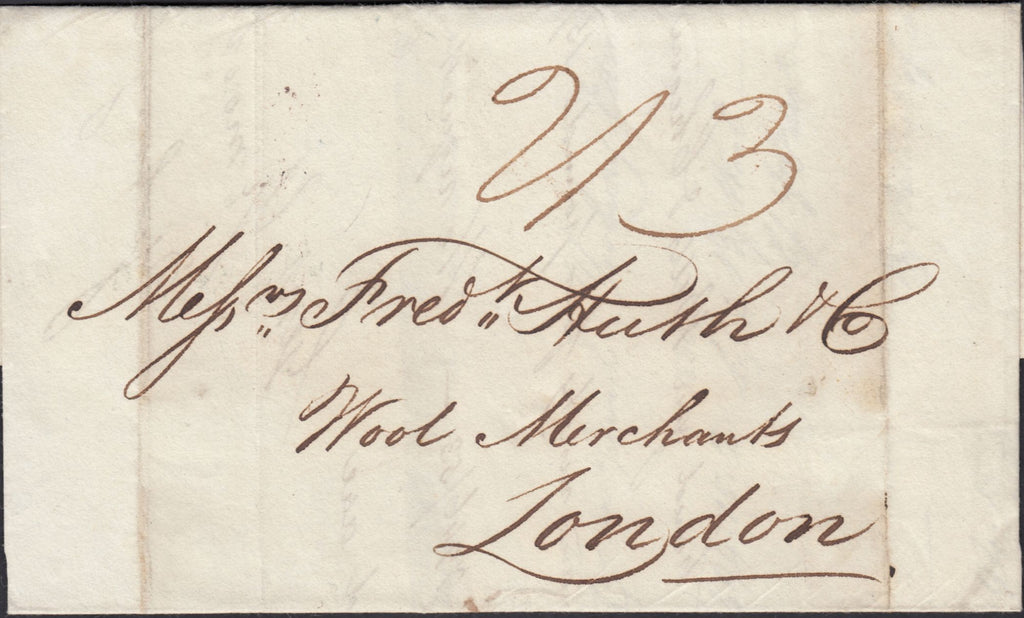 1/3
Messrs Fredk Huth & Co
Wool Merchants
London